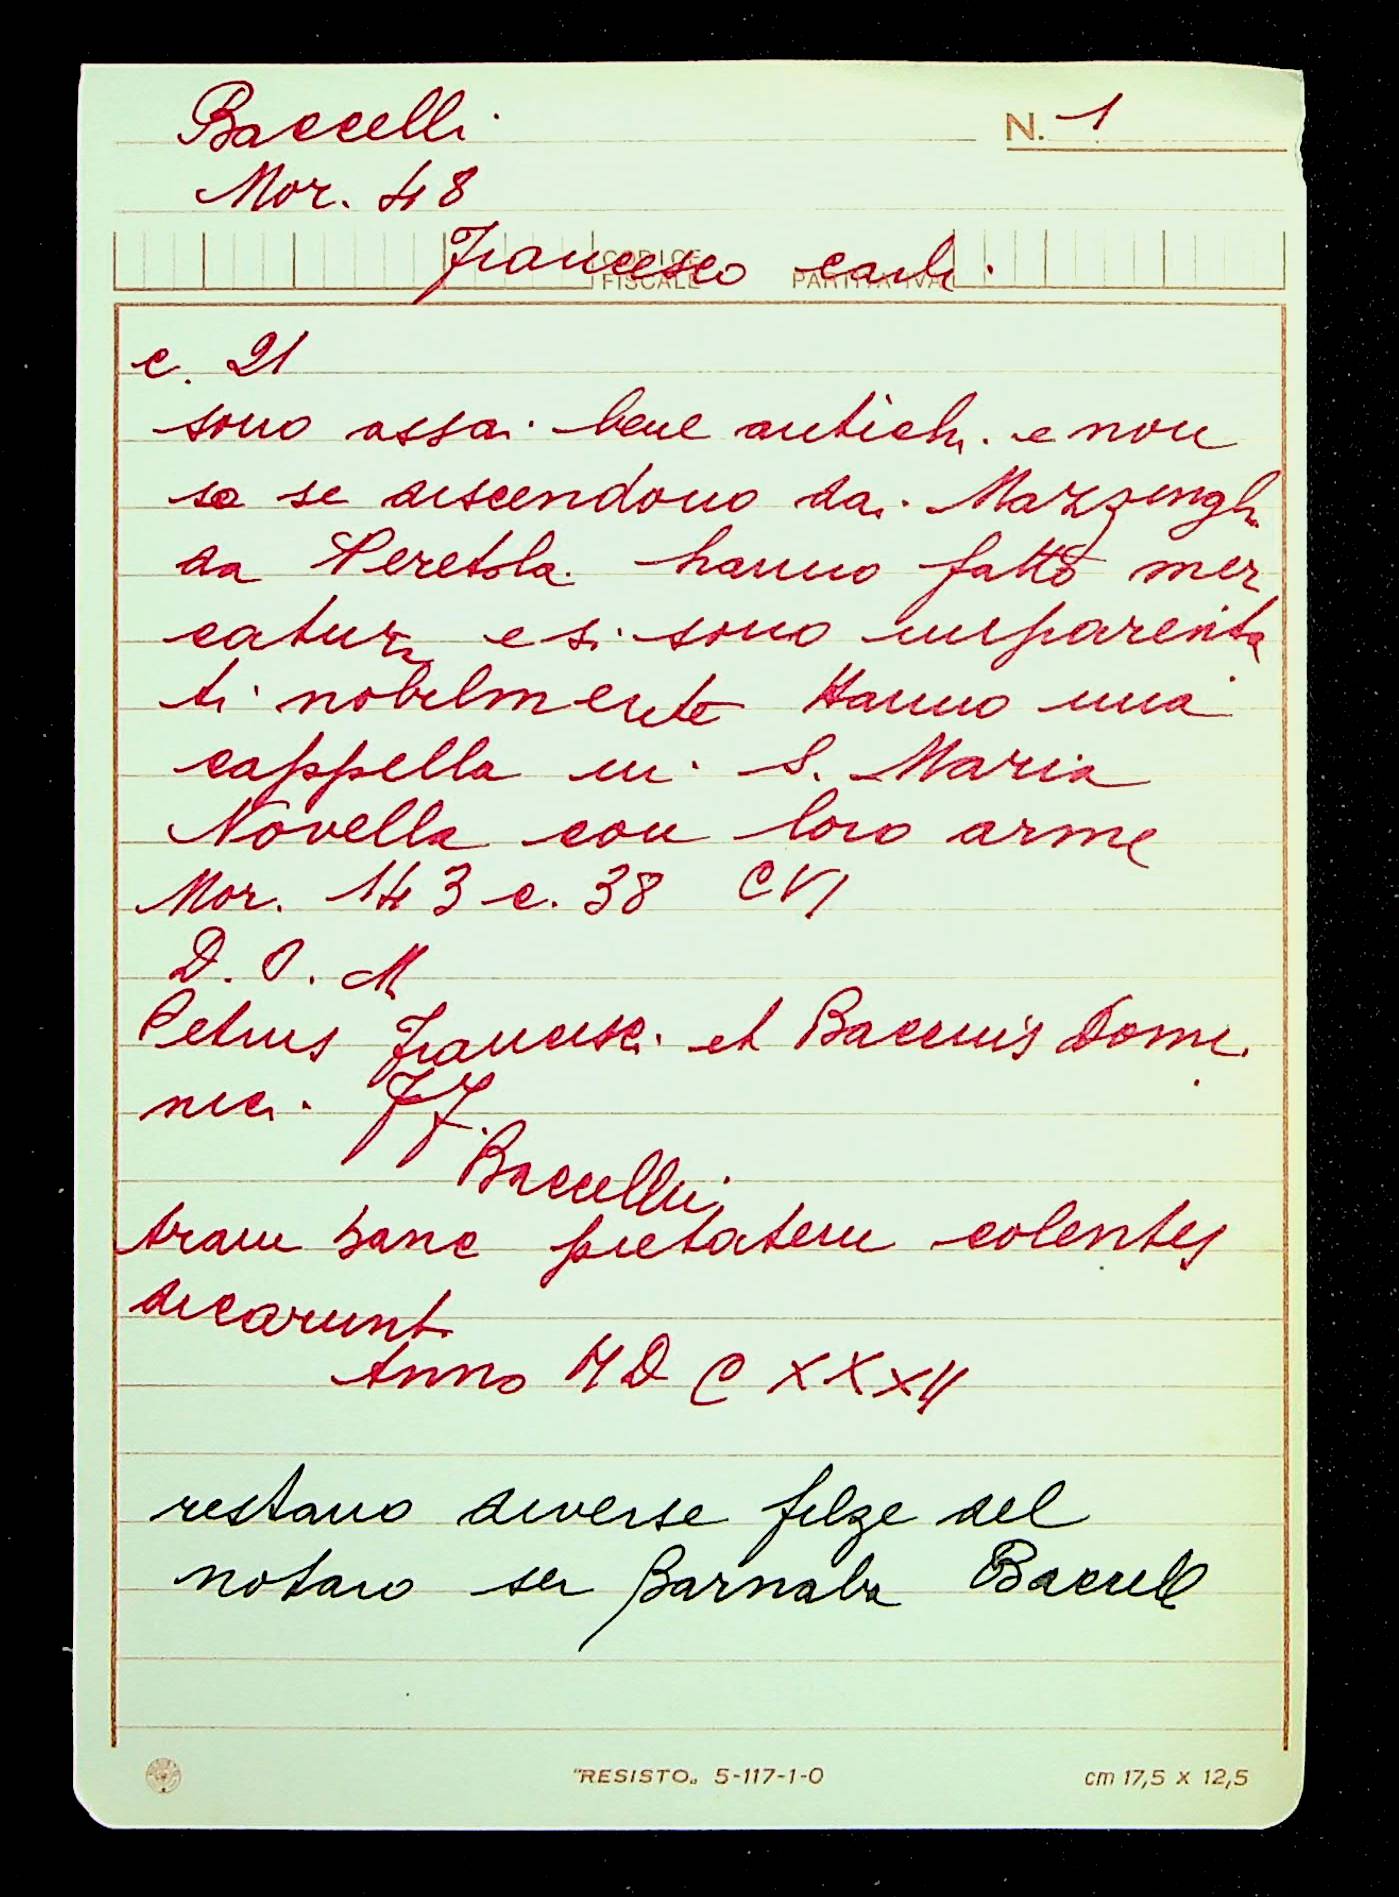 Baccelli
N. 1
Mor. 48
CODICE FISCALE PARTITA IVA
Francesco carli.
c. 21
sono assai bene antichi e non
so se discendono dai Mazzinghi
da Peretola. hanno fatto mer
catura e si sono imparenta
ti nobilmente Hanno una
cappella in S. Maria
Novella con loro arme
Mor. 143 c. 38 CVI
D. O. M
Petrus Francisci et Baccius Domi
nici. FF.
Baccellii
aram hanc pietatem colentes
dicarunt
Anno MDCXXXII
restano diverse filze del
notaio ser Barnaba Baccelli
"RESISTO" 5-117-1-0
cm 17,5 x 12,5